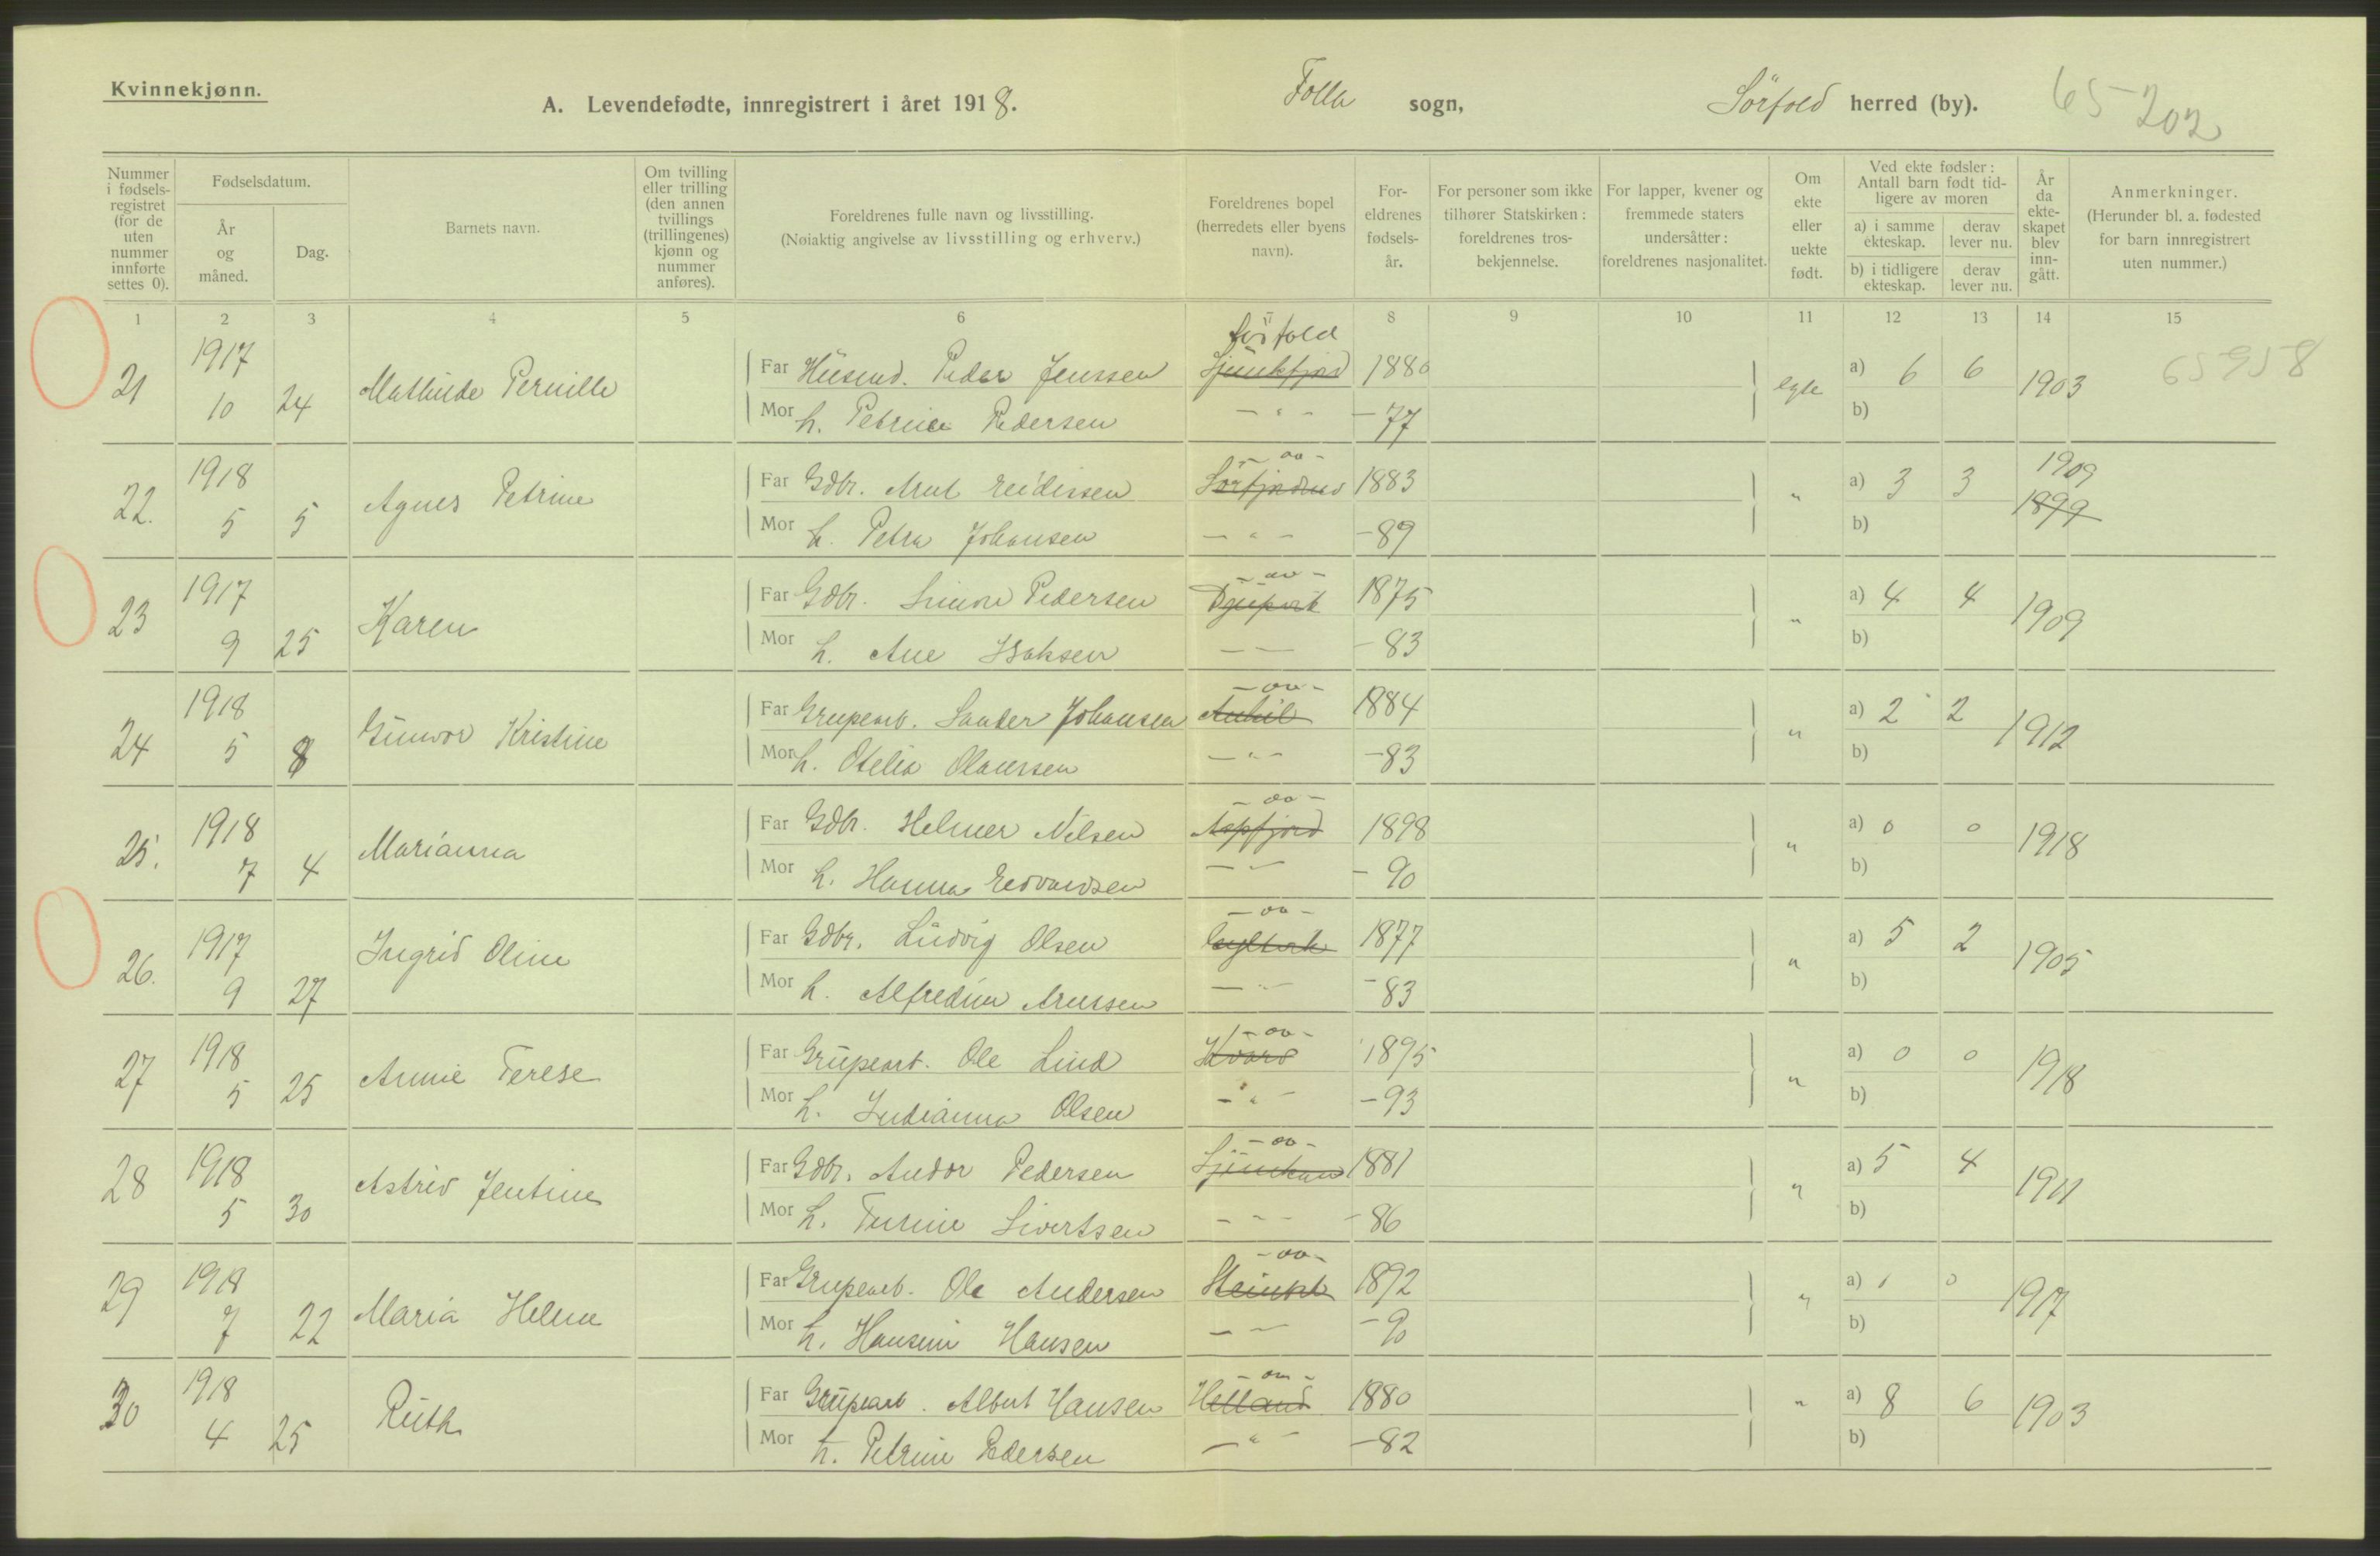 Kvinnekjønn.
A. Levendefødte, innregistrert i året 1918.
Folla sogn,
Sörfold herred (by).
65 202
Nummer i fødsels-registret (for de uten nummer innførte settes 0).
Fødselsdatum.
År og måned.
Dag.
Barnets navn.
Om tvilling eller trilling (den annen tvillings (trillingenes) kjønn og nummer anføres).
Foreldrenes fulle navn og livsstilling.
(Nøiaktig angivelse av livsstilling og erhverv.)
Foreldrenes bopel (herredets eller byens navn).
For-eldrenes fødsels-år.
For personer som ikke tilhører Statskirken: foreldrenes tros-bekjennelse.
For lapper, kvener og fremmede staters undersåtter: foreldrenes nasjonalitet.
Om ekte eller uekte født.
Ved ekte fødsler: Antall barn født tid-ligere av moren
a) i samme ekteskap.
derav lever nu.
b) i tidligere ekteskap.
derav lever nu.
År da ekte-skapet blev inn-gått.
Anmerkninger.
(Herunder bl. a. fødested for barn innregistrert uten nummer.)
1 2 3 4 5 6 7 8 9 10 11 12 13 14 15
Sörfold
21 1917 10 24 Mathilde Pernille Far Husmd. Peder Jenssen 1880 egte a) 6 6 1903 65958
Mor h. Petrine Pedersen - " - - 77 b)
- oo -
22. 1918 5 5 Agnes Petrine Far Gdbr. Arnt Reidissen 1883 " a) 3 3 1909 1899
Mor h. Petra Johansen - " - - 89 b)
- oo -
23 1917 9 25 Karen Far Gdbr. Simon Pedersen Djupvik 1875 " a) 4 4 1909
Mor h. Ane Isaksen - - - 83 b)
- oo -
24 1918 5 8 Gunvor Kristine Far Grupearb. Sander Johansen 1884 " a) 2 2 1912
Mor h. Otelia Olaussen - " - - 83 b)
- oo -
25. 1918 7 4 Marianna Far Gdbr. Helmer Nilsen Aspfjord 1898 " a) 0 0 1918
Mor h. Hanna Edvardsen - - - 90 b)
- oo -
26. 1917 9 27 Ingrid Oline Far Gdbr. Ludvig Olsen 1877 " a) 5 2 1905
Mor h. Alfredine Arnssen - " - - 83 b)
- oo -
27 1918 5 25 Annie Terese Far Grupearb. Ole Lind 1895 " a) 0 0 1918
Mor h. Indianna Olsen - " - - 93 b)
- oo -
28 1918 5 30 Astrid Jentine Far Gdbr. Andor Pedersen 1881 " a) 5 4 1911
Mor h. Sivertsen - - - - 86 b)
- oo -
29 1918 7 22 Maria Helene Far Grupearb. Ole Andersen 1892 " a) 1 0 1917
Mor h. Hansine Hansen - - - 90 b)
- oo -
30 1918 4 25 Ruth Far Grupearb. Albert Hansen Helland 1880 " a) 8 6 1903
Mor h. Petrine Pedersen - " - - 82 b)